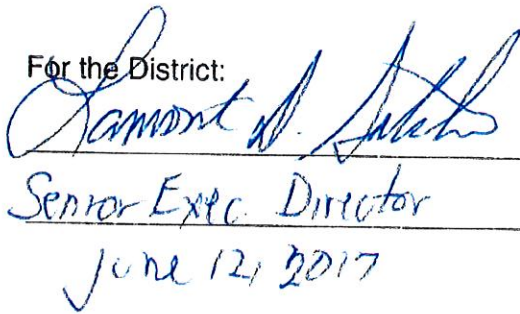 For the District:
Lamont
Senior Exec Director
June 12, 2017